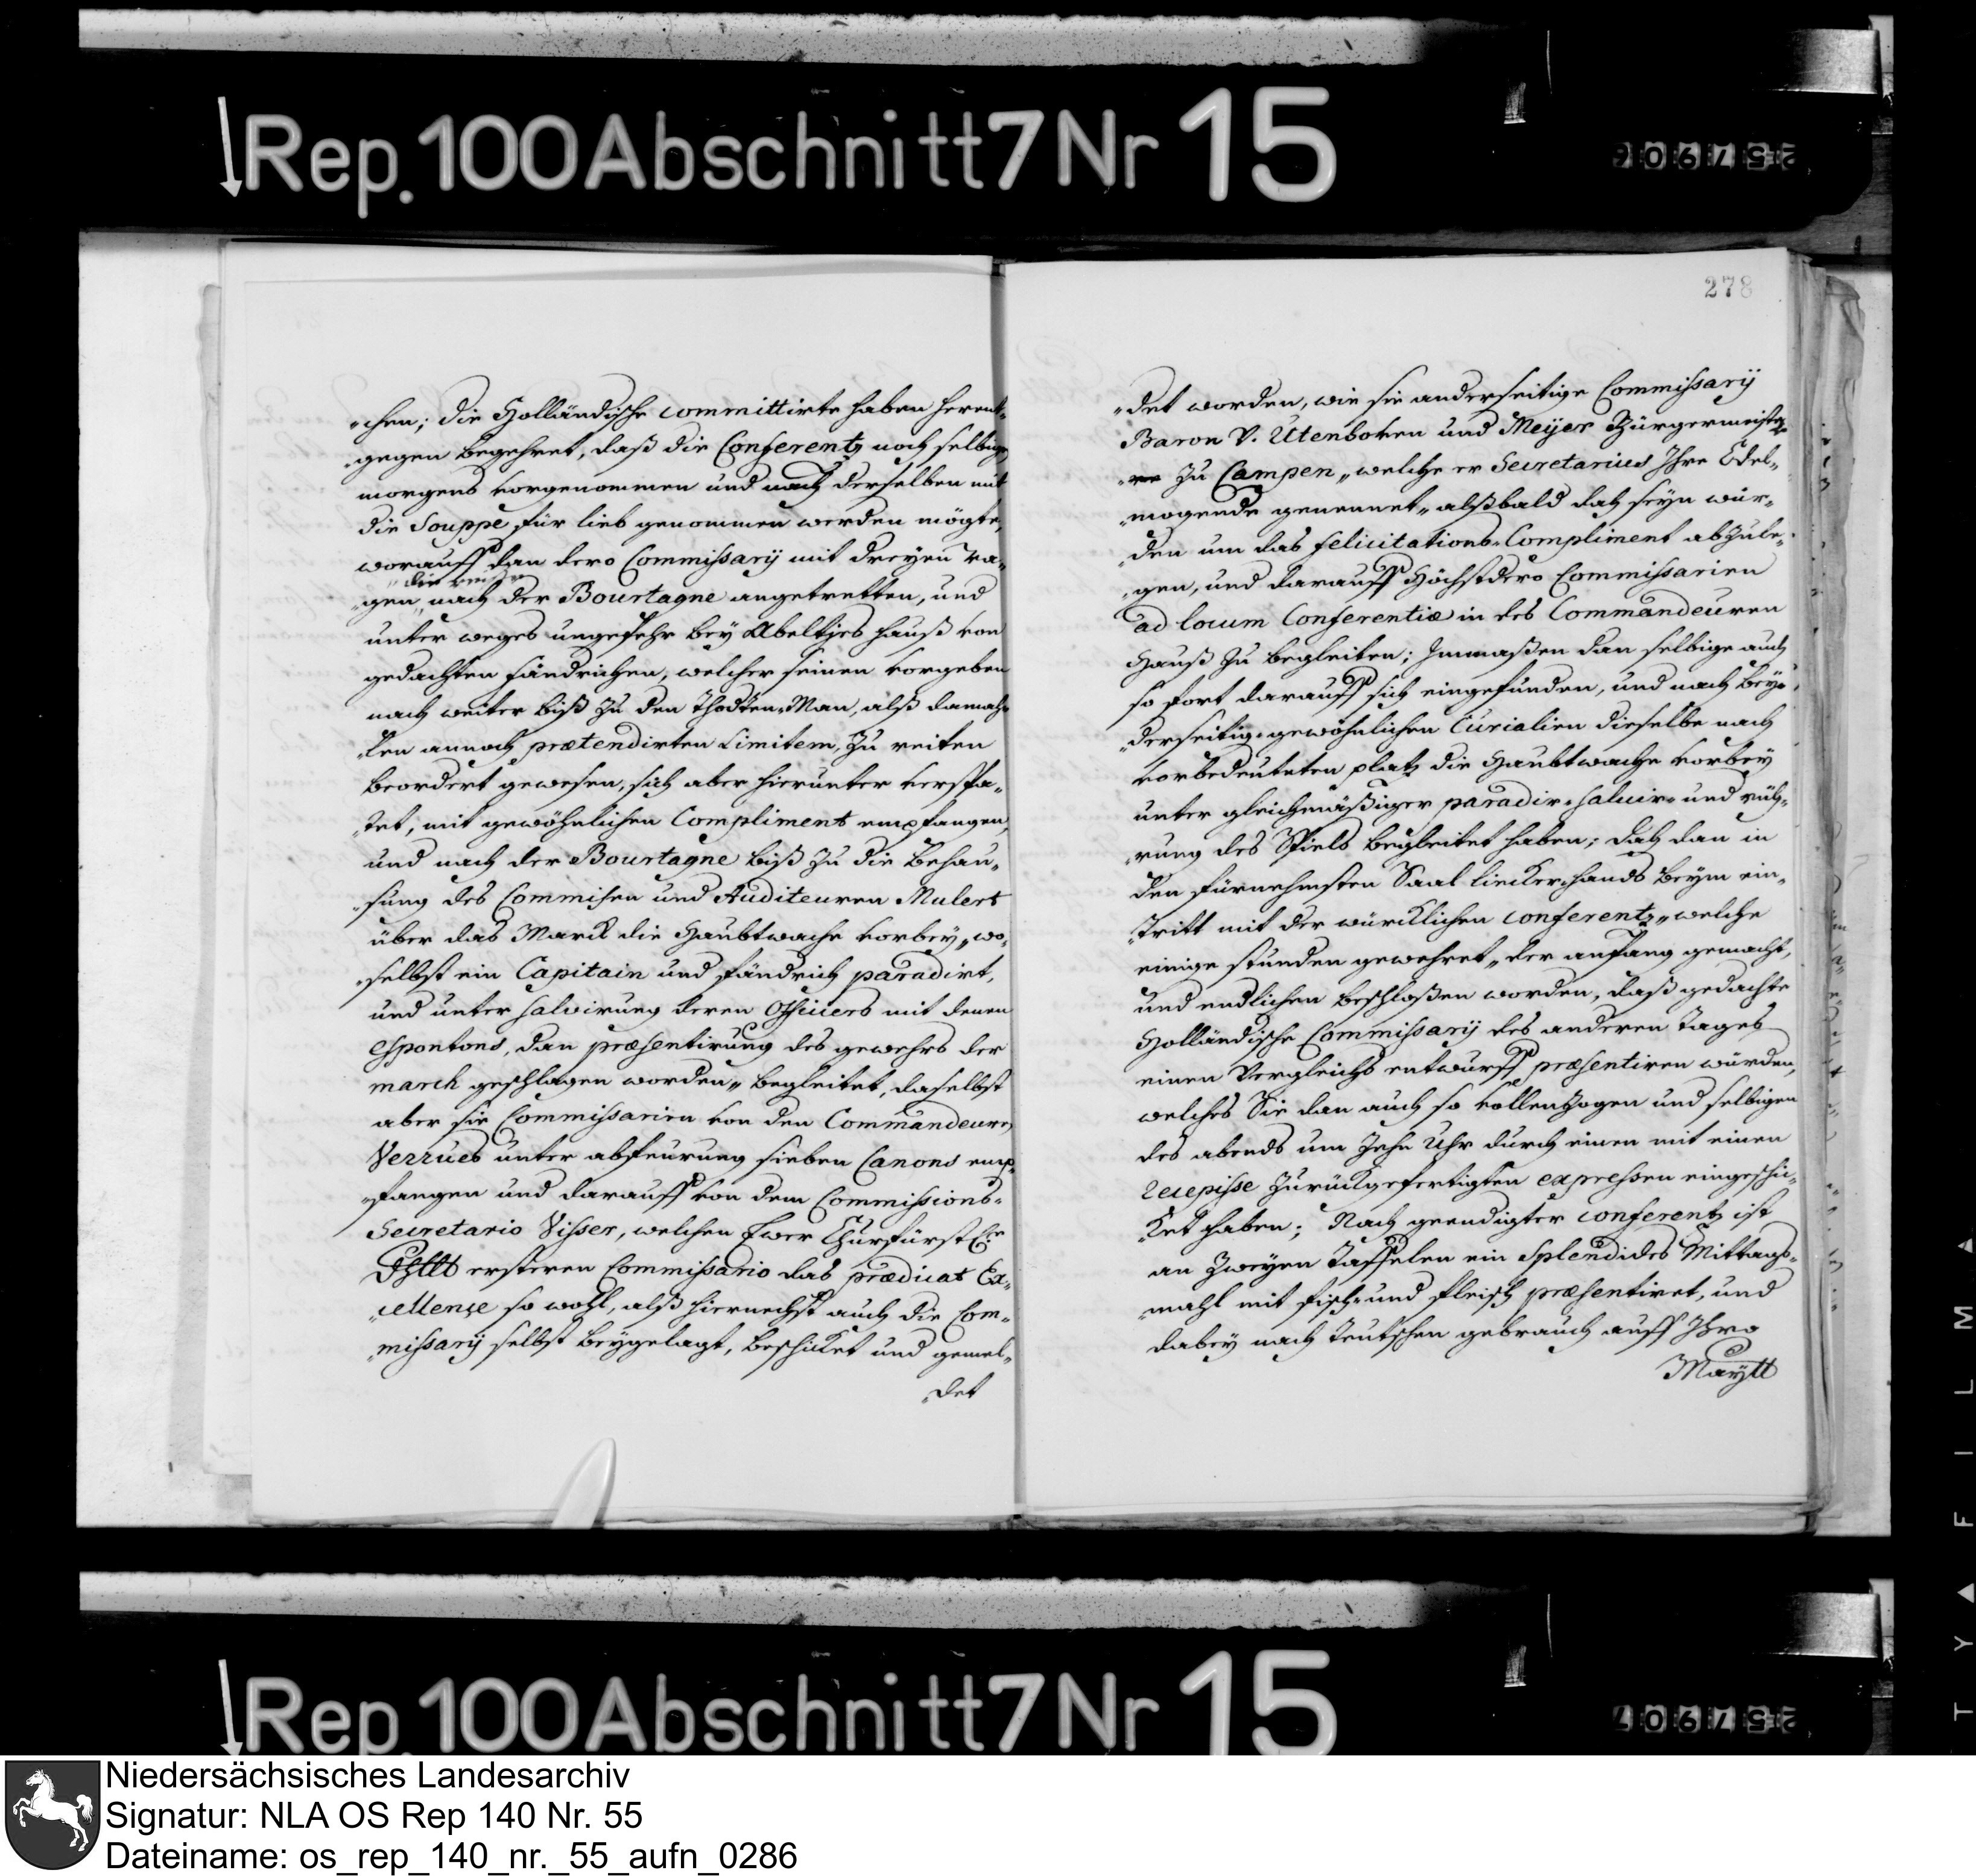 Rep. 100 Abschnitt 7 Nr 15
257906
„chen; die Holländische committirte haben herent„
„gegen begehret, daß die Conferentz noch selbigen
morgens vorgenommen und nach derselben mit
die Souppe für lieb genommen werden mögte,
worauff dan dero Commissarÿ mit dreÿen wa„
die reise
„gen nach der Bourtagne angetretten, und
unter weges ungefehr beÿ Abeltjes hauß von
gedachten fändrichen, welcher seinen vorgeben
nach weiter biß zu den Thodten-Man, alß damah„
„len annoch prætendirten Limitem, zu reiten
beordert gewesen, sich aber hierunter verspä„
„tet, mit gewöhnlichen Compliment empfangen,
und nach der Bourtagne biß zu die behau„
„sung des Commisen und Auditeuren Mulert
über das Marck die Haubtwache vorbeÿ „wo„
„selbst ein Capitain und fändrich paradirt,
und unter salvirung deren Officiers mit denen
Espontons, dan præsentirung des gewehrs der
march geschlagen worden„ begleitet, daselbst
aber sie Commissarien von den Commandeuren
Verrues unter abfeurung sieben Canons emp„
„fangen und darauff von dem Commissions-
Secretario Visser, welchen Ewer Churfürstl:r
Dhltt ersteren Commissario das prædicat Ex„
„cellenze so wohl, alß hiernechst auch die Com„
„missarÿ selbst beÿgelagt, beschicket und gemel„
„det
278
„det worden, wie sie anderseitige Commissarÿ
Baron v. Utenboken und Meÿer Bürgermeister
zu Campen „welche er Secretarius Ihre Edel„
„mogende genennet„ alßbald dah seÿn wür„
„den um das felicitations-Compliment abzule„
„gen, und darauff Höchstdero Commissarien
ad locum Conferentiæ in des Commandeuren
Hauß zu begleiten; Inmaßen dan selbige auch
so fort darauff sich eingefunden, und nach beÿ„
„derseitig-gewöhnlichen Curialien dieselbe nach
vorbedeuteten platz die Haubtwache vorbeÿ
unter gleichmäßiger paradir- salvir- und rüh„
„rung des Spiels begleitet haben; dah dan in
den fürnehmsten Saal lincker-hands beÿm ein„
„tritt mit der würcklichen conferentz „welche
einige stunden gewehret„ der anfang gemacht,
und endlichen beschloßen worden, daß gedachte
Holländische Commissarÿ des anderen tages
einen Vergleichs entwurff præsentiren würden,
welches Sie dan auch so vollenzogen und selbigen
des abends um Zehn Uhr durch einen mit einen
recepisse zurückgefertigten expressen eingeschi„
„cket haben; Nach geendigter conferentz ist
an zweÿen Taffelen ein splendides Mittags„
„mahl mit fisch- und fleisch præsentiret, und
dabeÿ nach teutschen gebrauch auff Ihro
Maÿtt
Rep. 100 Abschnitt 7 Nr 15
257907
FILM
Niedersächsisches Landesarchiv
Signatur: NLA OS Rep 140 Nr. 55
Dateiname: os_rep_140_nr._55_aufn_0286